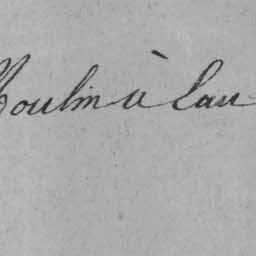 Moulin à Eau